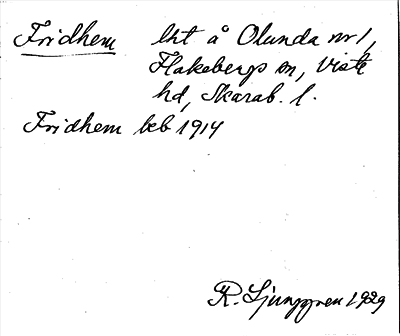 Fridhem lht å Olunda nr 1,
Flakebergs sn, Viste
hd, Skarab. l.
Fridhem beb 1914
R. Ljunggren 1929